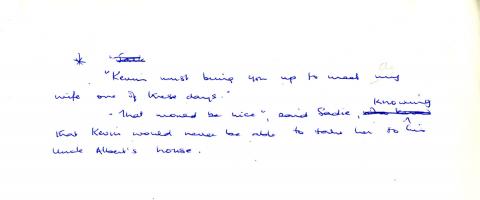 * "Sadie
"Kevin must bring you up to meet my
wife one of these days."
"That would be nice", said Sadie, who knew knowing
that Kevin would never be able to take her to his
Uncle Albert's house.